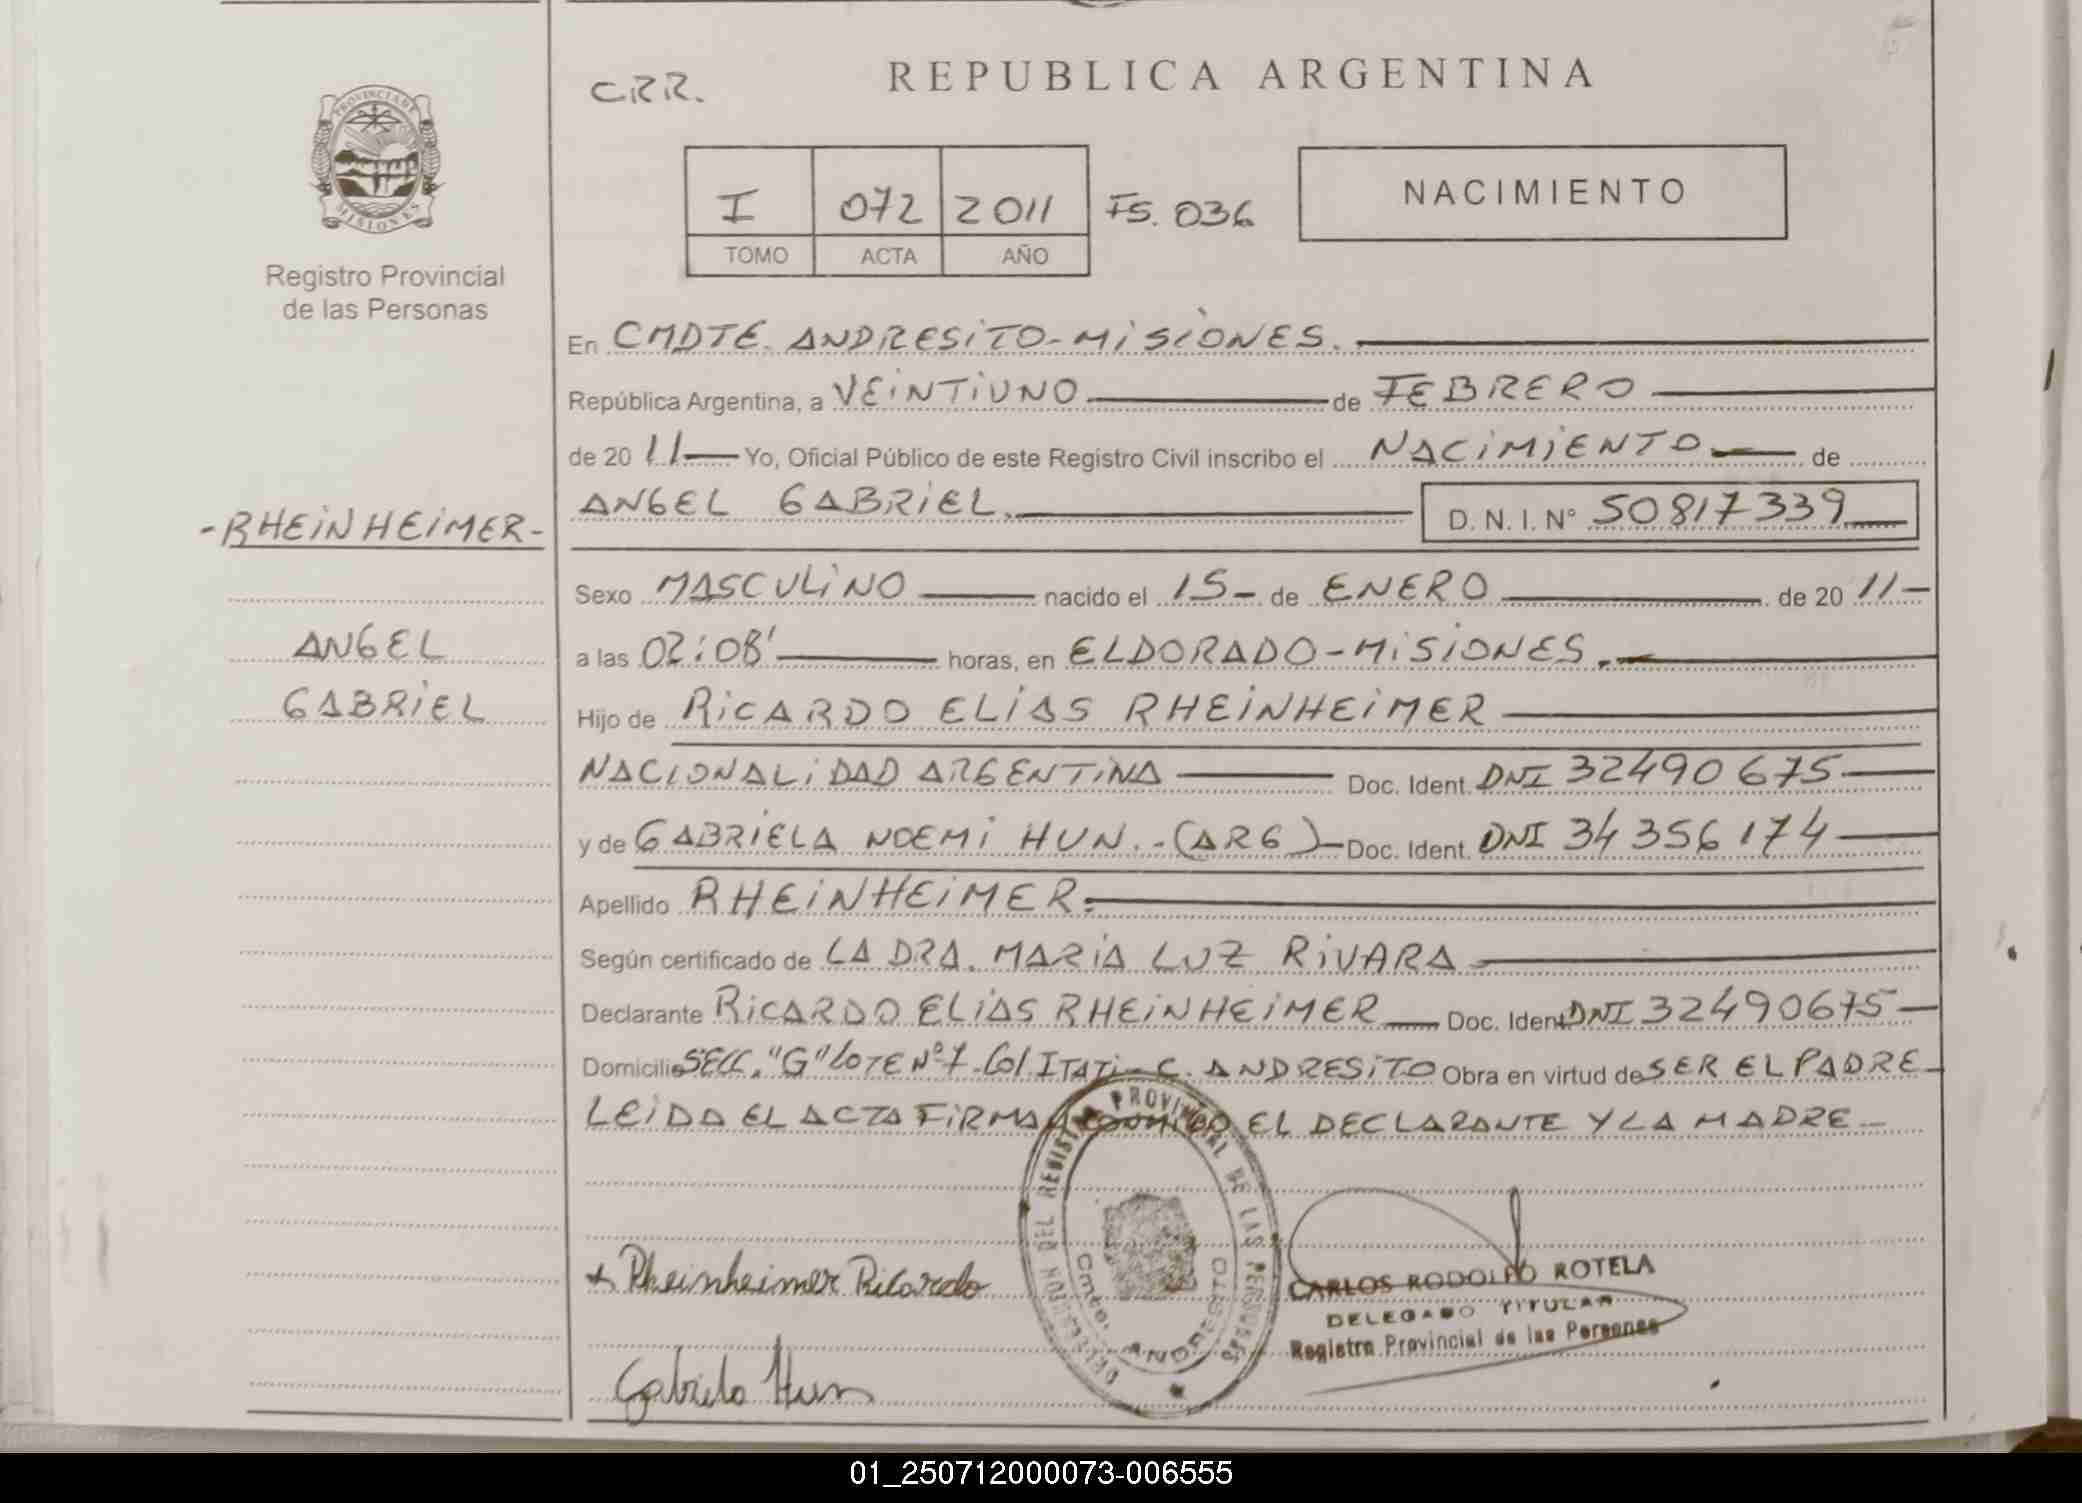 CRR.
REPUBLICA ARGENTINA
PROVINCIA DE
MISIONES
Registro Provincial
de las Personas
I 072 2011 FS. 036
TOMO ACTA AÑO
NACIMIENTO
En CMDTE. ANDRESITO-MISIONES.
República Argentina, a VEINTIUNO de FEBRERO
de 20 11 Yo, Oficial Público de este Registro Civil inscribo el NACIMIENTO de
ANGEL GABRIEL. D. N. I. Nº 50817339
-RHEINHEIMER-
ANGEL
GABRIEL
Sexo MASCULINO nacido el 15 de ENERO de 20 11
a las 02:08' horas, en ELDORADO-MISIONES.
Hijo de RICARDO ELIAS RHEINHEIMER
NACIONALIDAD ARGENTINA Doc. Ident. DNI 32490675
y de GABRIELA NOEMI HUN.-(ARG) Doc. Ident. DNI 34356174
Apellido RHEINHEIMER.
Según certificado de LA DRA. MARIA LUZ RIVARA
Declarante RICARDO ELIAS RHEINHEIMER Doc. Ident DNI 32490675
Domicilio SECC. "G" LOTE Nº 7-Col ITATI-C. ANDRESITO Obra en virtud de SER EL PADRE
LEIDA EL ACTA FIRMA EL DECLARANTE Y LA MADRE
Rheinheimer Ricardo
Gabriela Hun
DELEGACION DEL REGISTRO PROVINCIAL DE LAS PERSONAS
Cmte. ANDRESITO
CARLOS RODOLFO ROTELA
DELEGADO TITULAR
Registro Provincial de las Personas
01_250712000073-006555